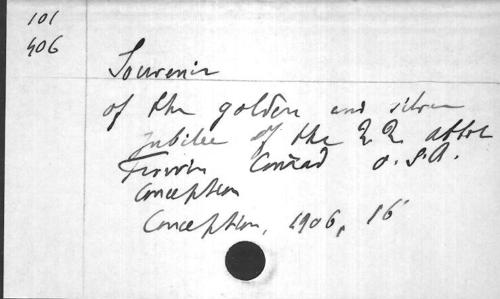 101
406
Souvenir
of the golden and silver
jubilee of the R R abbot
Frowin Conrad O.S.A.
Conception
Conception, 1906, 16°